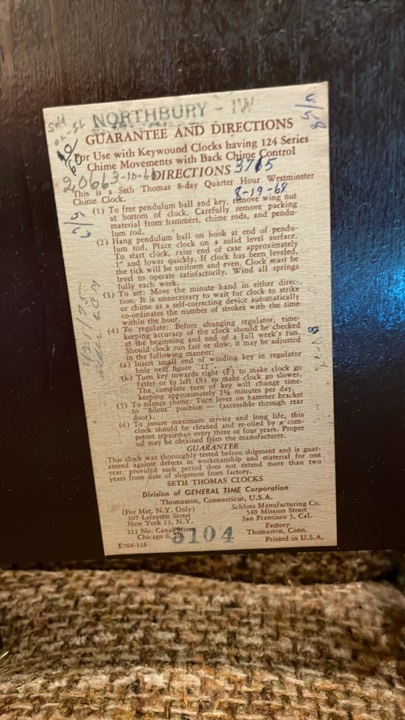 Sold
NORTHBURY - 1W
GUARANTEE AND DIRECTIONS
For Use with Keywound Clocks having 124 Series
Chime Movements with Back Chime Control
DIRECTIONS 3765
This is a Seth Thomas 8-day Quarter Hour Westminster
Chime Clock. 8-19-68
(1) To free pendulum ball and key, remove wing nut
at bottom of clock. Carefully remove packing
material from hammers, chime rods, and pendu-
lum rod.
(2) Hang pendulum ball on hook at end of pendu-
lum rod. Place clock on a solid level surface.
To start clock, raise end of case approximately
1" and lower quickly. If clock has been leveled,
the tick will be uniform and even. Clock must be
level to operate satisfactorily. Wind all springs
fully each week.
(3) To set: Move the minute hand in either direc-
tion. It is unnecessary to wait for clock to strike
or chime as a self-correcting device automatically
co-ordinates the number of strokes with the time
within the hour.
(4) To regulate: Before changing regulator, time-
keeping accuracy of the clock should be checked
at the beginning and end of a full week's run.
Should clock run fast or slow, it may be adjusted
in the following manner:
(a) Insert small end of winding key in regulator
hole near figure "12".
(b) Turn key towards right (F) to make clock go
faster or to left (S) to make clock go slower.
The complete turn of key will change time-
keeping approximately 2½ minutes per day.
(5) To silence chime: Turn lever on hammer bracket
to "Silent" position — (accessible through rear
door).
(6) To insure maximum service and long life, this
clock should be cleaned and re-oiled by a com-
petent repairman every three or four years. Proper
oil may be obtained from the manufacturer.
GUARANTEE
This clock was thoroughly tested before shipment and is guar-
anteed against defects in workmanship and material for one
year, provided such period does not extend more than two
years from date of shipment from factory.
SETH THOMAS CLOCKS
Division of GENERAL TIME Corporation
Thomaston, Connecticut, U.S.A.
(For Met. N.Y. Only)
107 Lafayette Street
New York 13, N.Y.
Schloss Manufacturing Co.
540 Mission Street
San Francisco 5, Cal.
211 No. Canal
Chicago 6,
Factory
Thomaston, Conn.
5104
E704-116
Printed in U.S.A.